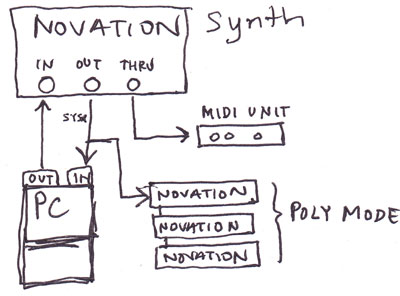 NOVATION Synth
IN OUT THRU
SYSX
MIDI UNIT
OUT IN
PC
NOVATION
NOVATION
NOVATION
POLY MODE